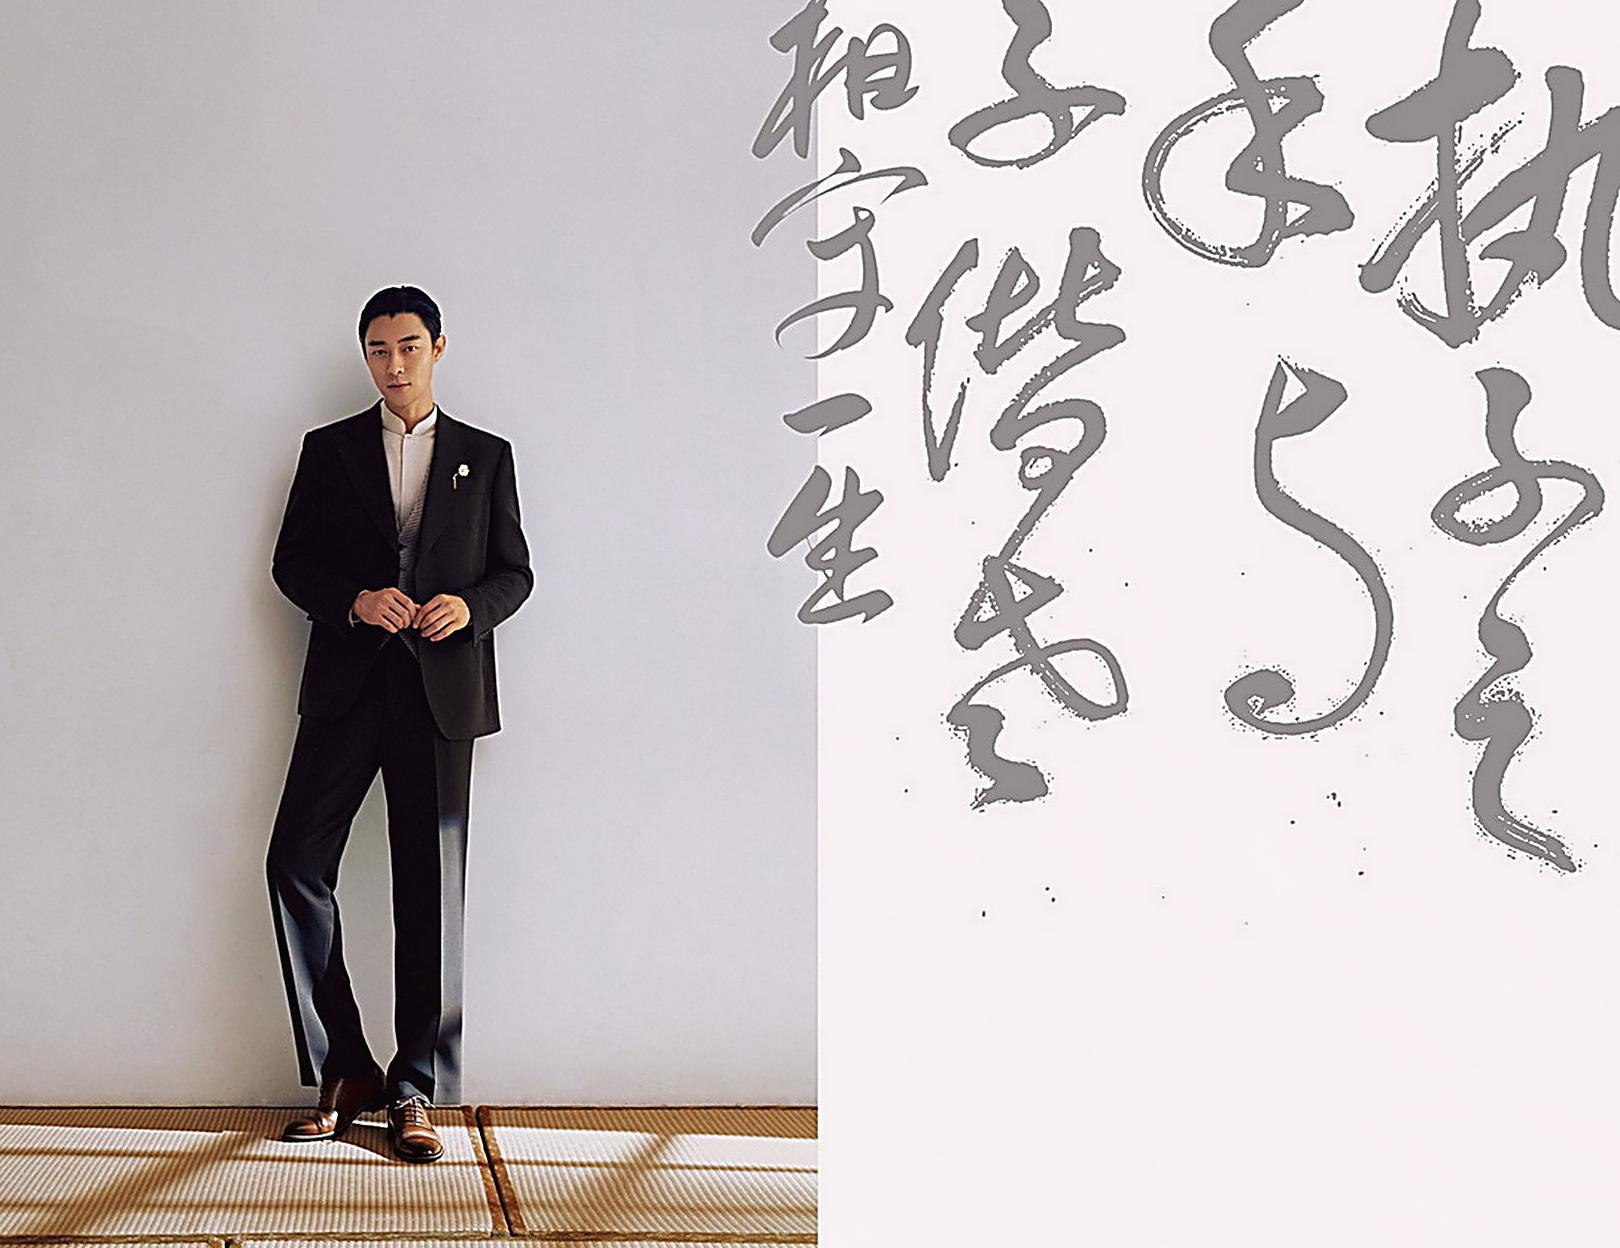 执子之
手与
子偕老
相守一生